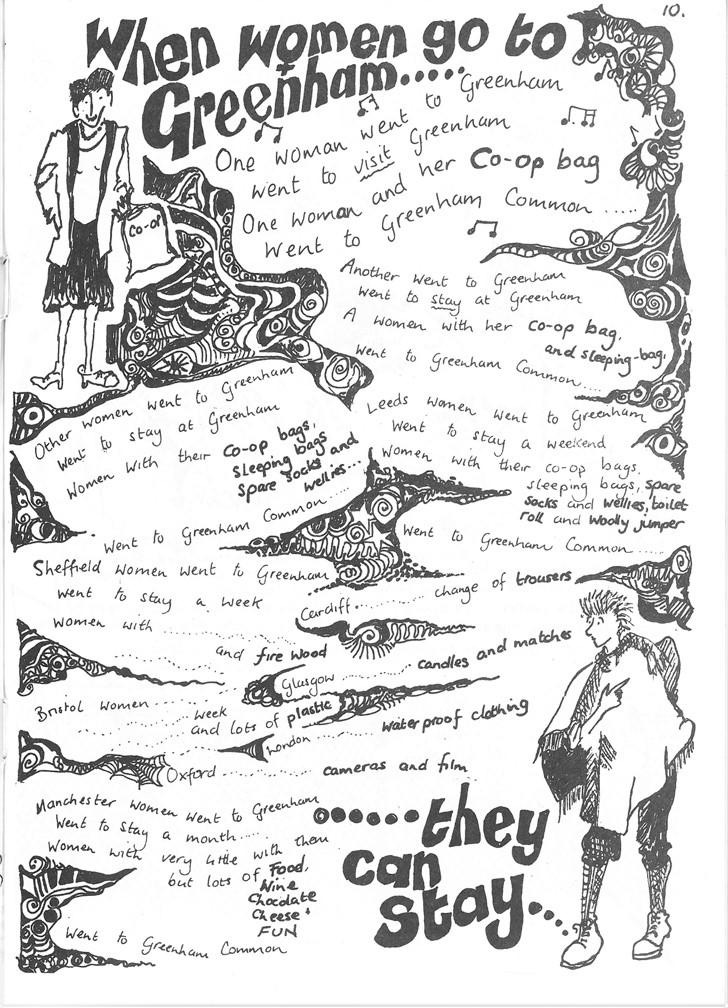 10.
When women go to
Greenham.....
One woman went to Greenham
went to visit Greenham
One woman and her Co-op bag
Went to Greenham Common .....
Co-op
Another went to Greenham
went to stay at Greenham
A women with her co-op bag,
and sleeping-bag,
Went to Greenham Common....
Other women went to Greenham
Went to stay at Greenham
Women with their Co-op bags,
Sleeping bags
Spare socks and
wellies...
Went to Greenham Common.....
Leeds women went to Greenham
Went to stay a weekend
Women with their co-op bags,
sleeping bags, spare
socks and wellies, toilet
roll and woolly jumper
Went to Greenham Common.....
Sheffield women went to Greenham
Went to stay a week
Women with ............
and fire wood
Cardiff............ change of trousers
Glasgow............ candles and matches
Bristol women ............
............ week
............ and lots of plastic
London ............ waterproof clothing
Oxford ............ cameras and film
Manchester women went to Greenham
Went to stay a month.....
Women with very little with them
but lots of Food,
Wine
Chocolate
Cheese +
FUN
Went to Greenham Common
......they
can
stay....